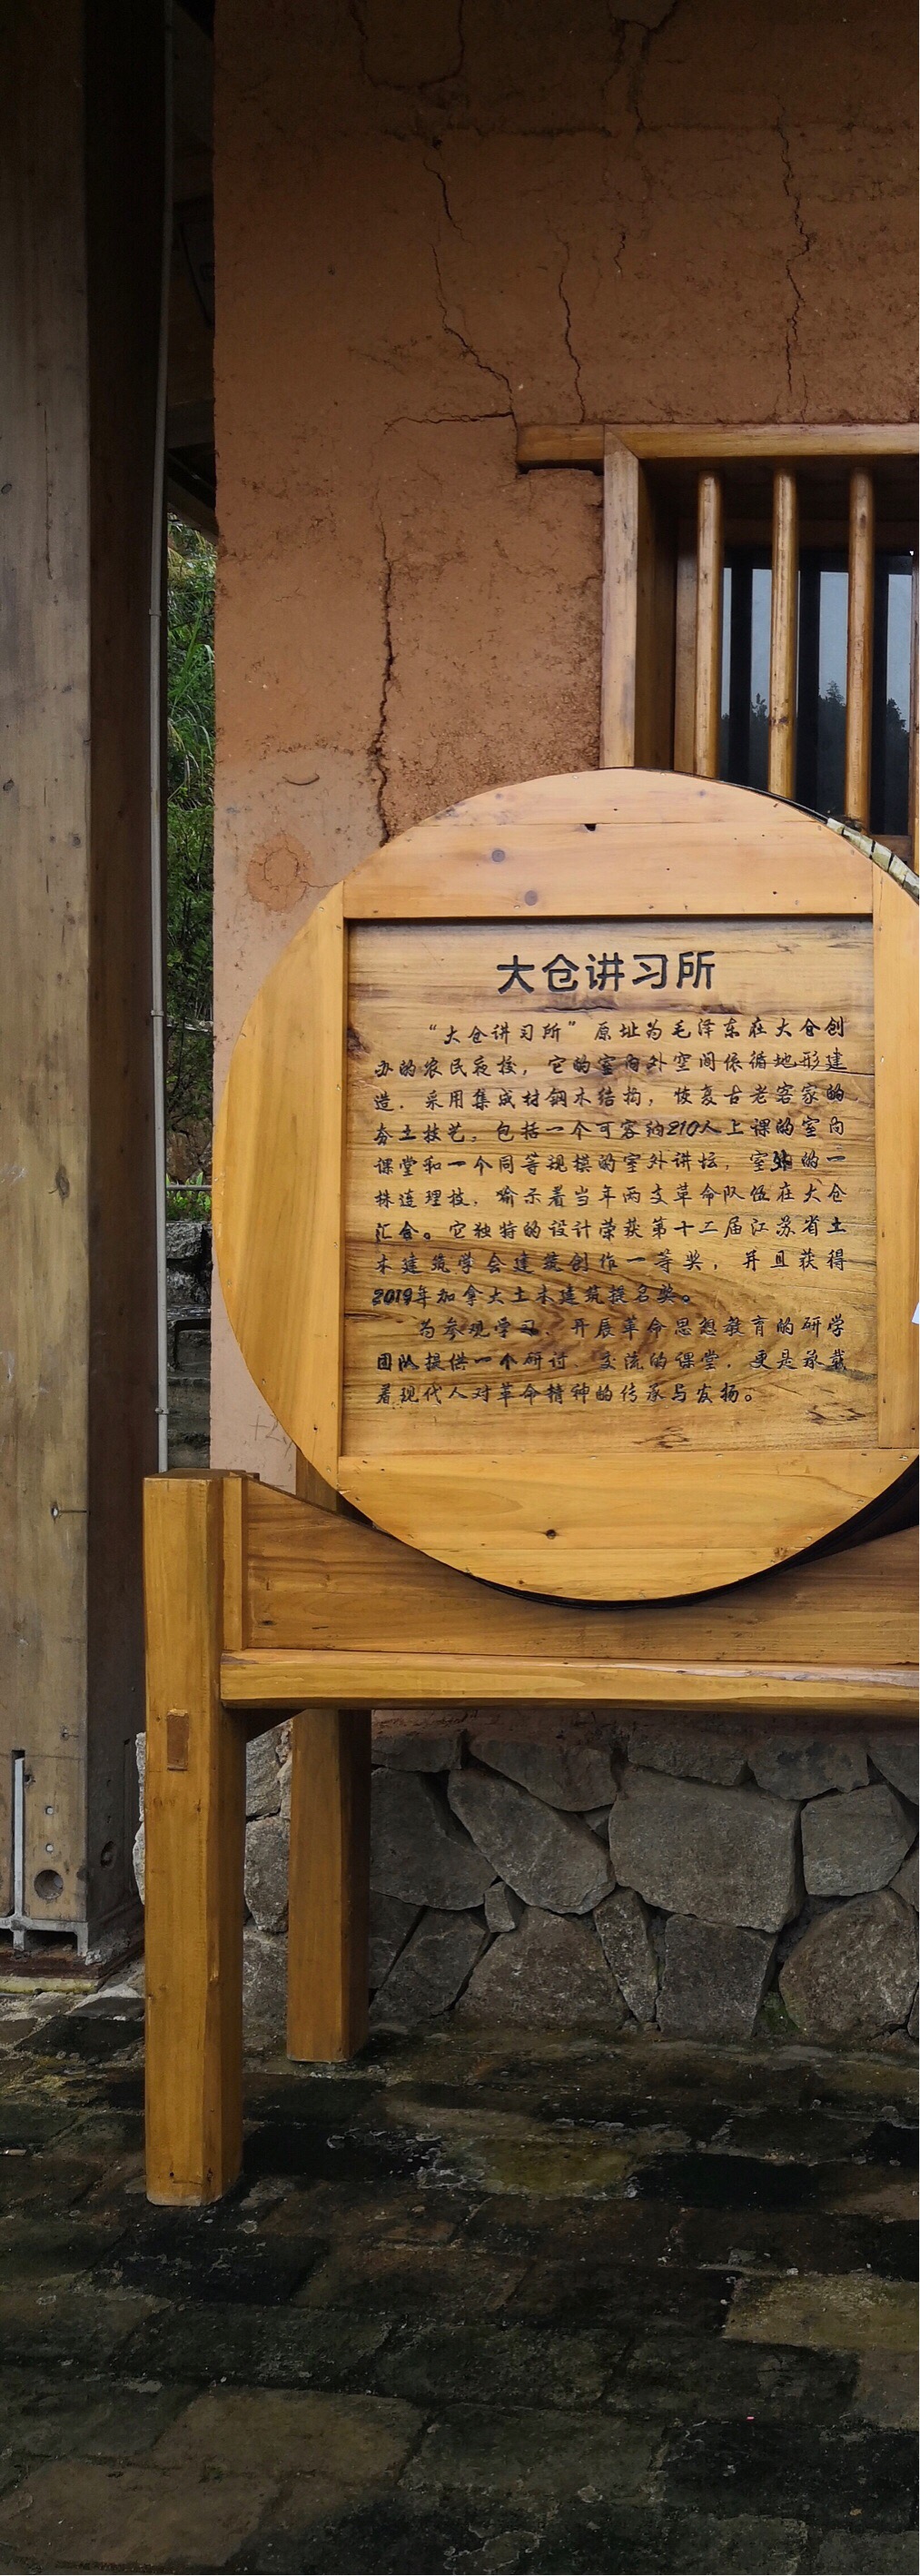 大仓讲习所
“大仓讲习所”原址为毛泽东在大仓创
办的农民夜校，它的室内外空间依循地形建
造，采用集成材钢木结构，恢复古老客家的
夯土技艺，包括一个可容纳210人上课的室内
课堂和一个同等规模的室外讲坛，室外的一
株连理枝，喻示着当年两支革命队伍在大仓
汇合。它独特的设计荣获第十二届江苏省土
木建筑学会建筑创作一等奖，并且获得
2019年加拿大土木建筑提名奖。
为参观学习、开展革命思想教育的研学
团队提供一个研讨、交流的课堂，更是承载
着现代人对革命精神的传承与发扬。